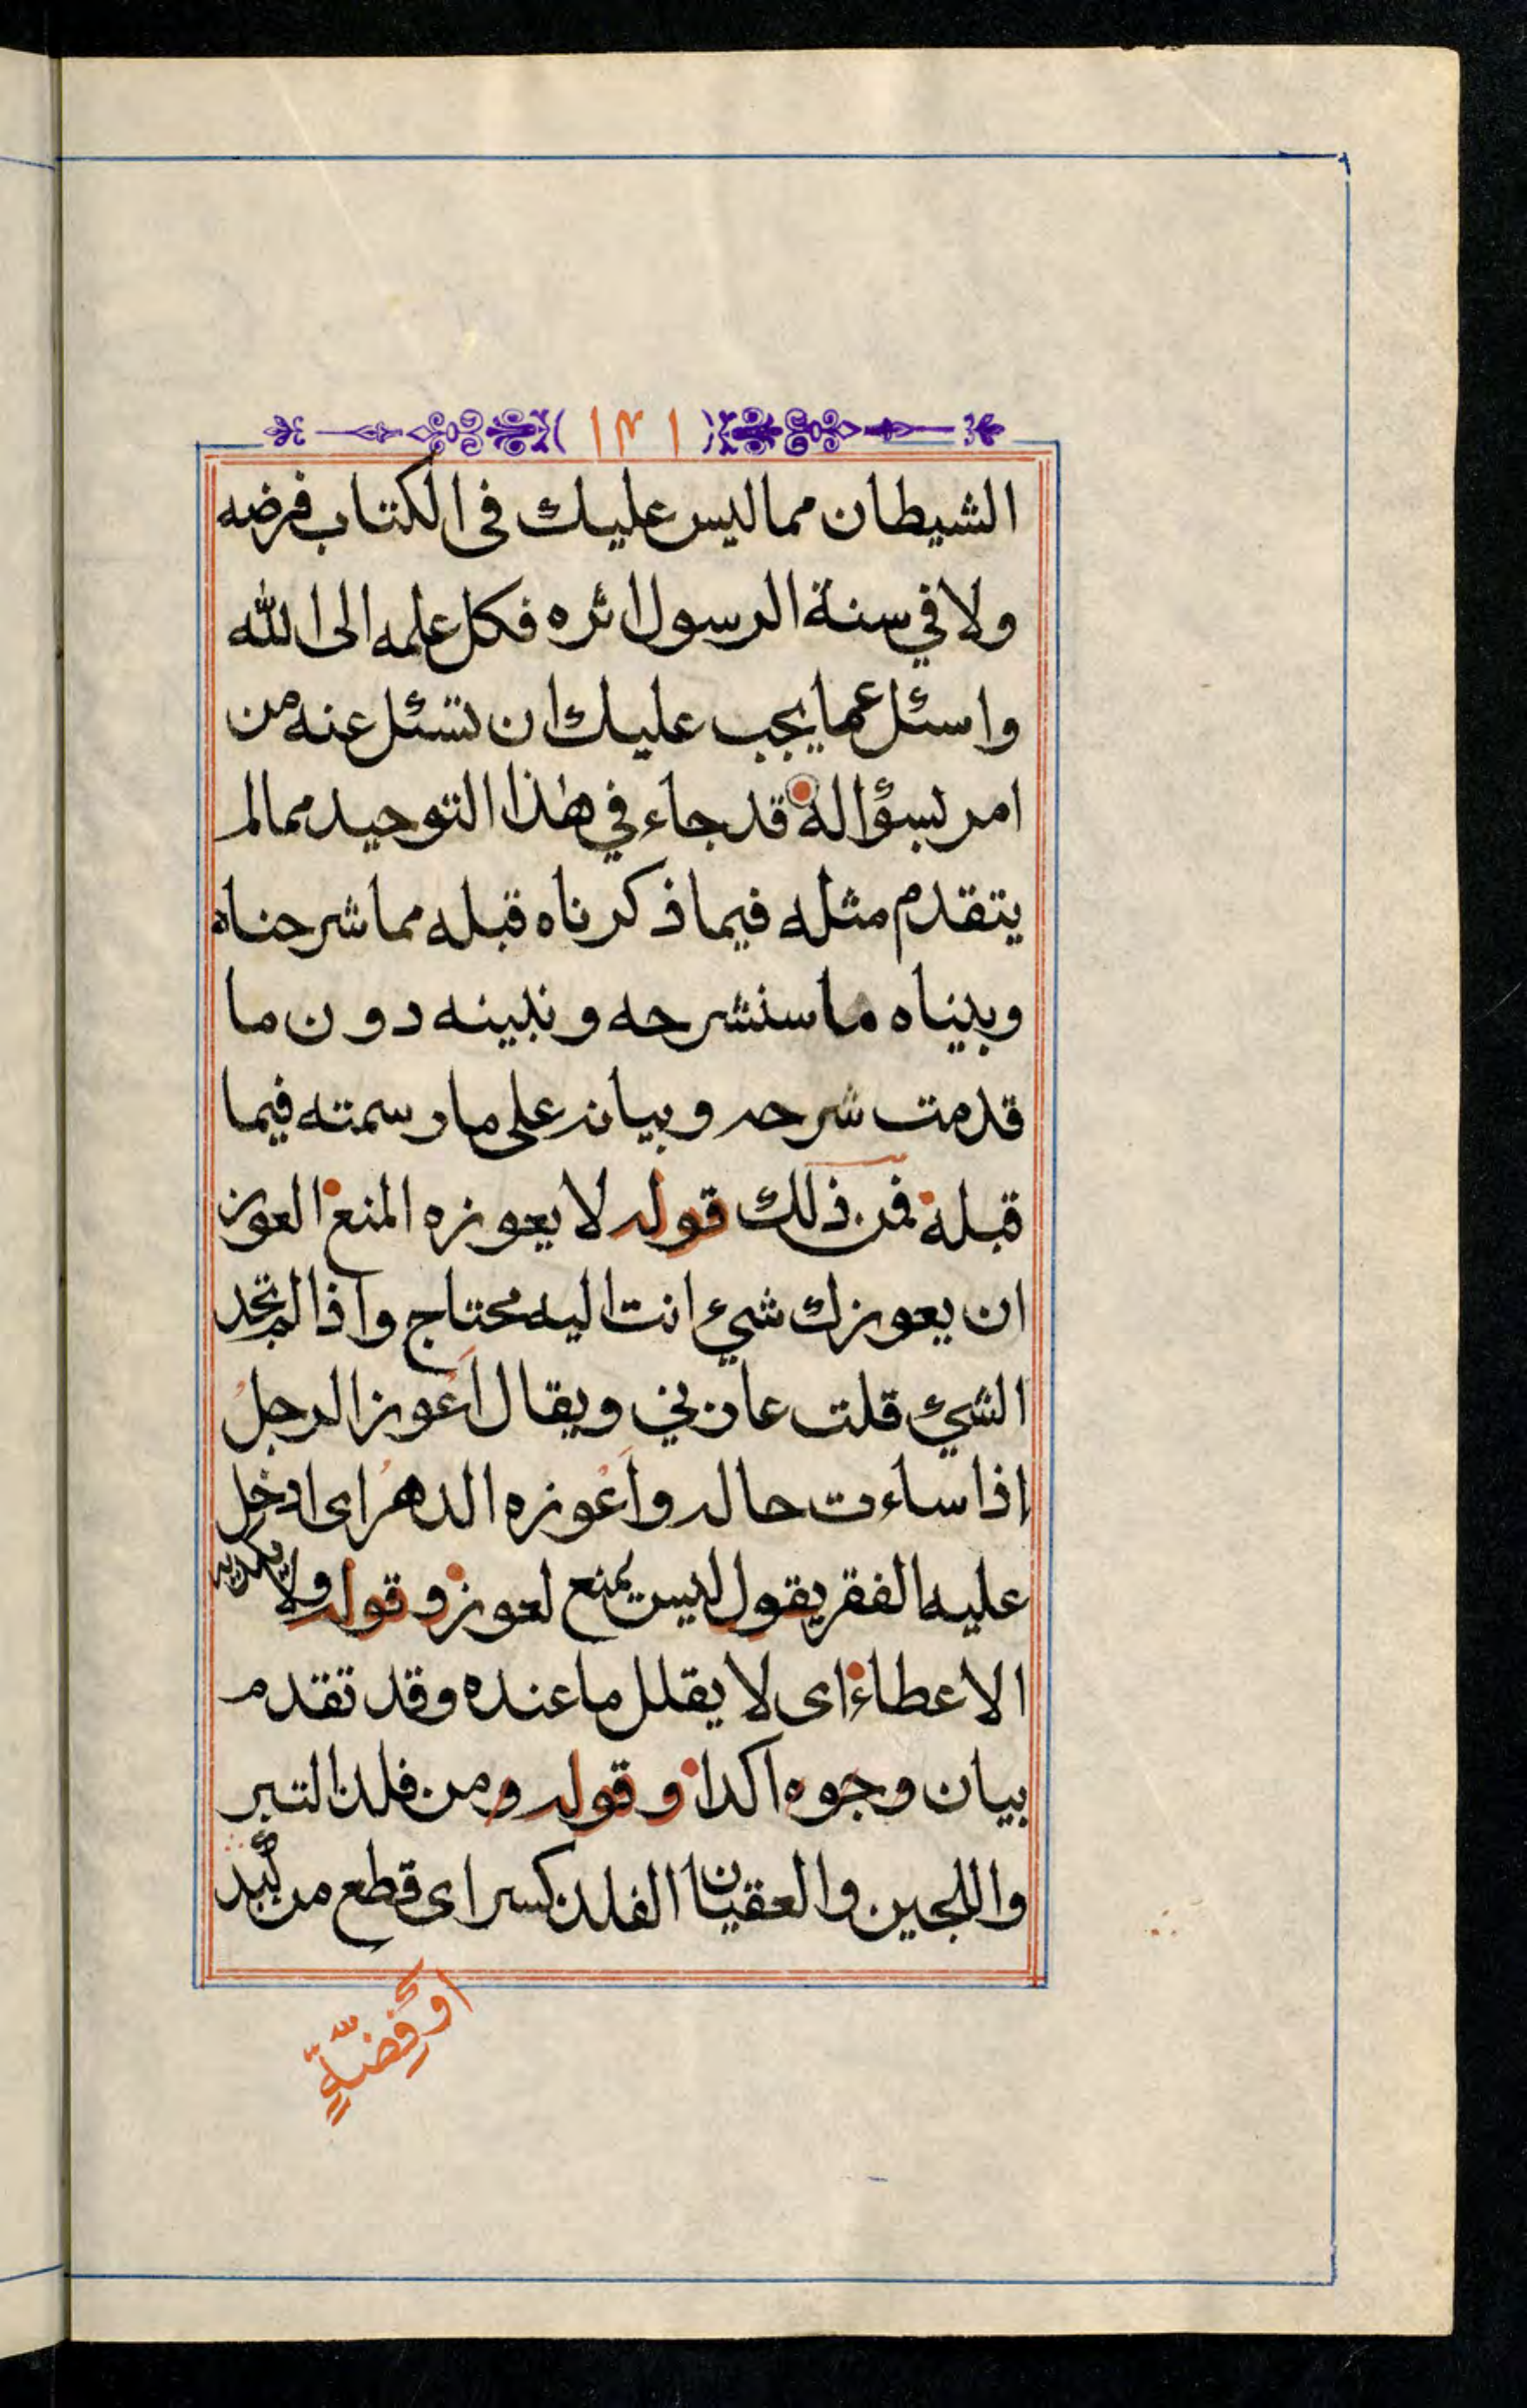 ١٣١
الشيطان مما ليس عليك في الكتاب فرضه
ولا في سنة الرسول اثره فكل علمه الى الله
واسئل عما يجب عليك ان تسئل عنه من
امر بسؤاله قد جاء في هذا التوحيد مما لم
يتقدم مثله فيما ذكرناه قبله مما شرحناه
وبيناه ما سنشرحه ونبينه دون ما
قدمت شرحه وبيانه على ما رسمته فيما
قبله فمن ذلك قوله لا يعوزه المنع العوز
ان يعوزك شيء انت اليه محتاج واذا لم تجد
الشيء قلت عازني ويقال اَعْوز الرجلُ
اذا ساءت حاله واَعْوزه الدهرُ اى ادخل
عليه الفقر يقول ليس يمنع لعوز وقوله ولا يكديه
الاعطاء اى لا يقلل ما عنده وقد تقدم
بيان وجوه اكدا وقوله ومن فلذ التبر
واللجين والعقيان الفلذ كسر اى قطع من كبد
او فِضّةٍ